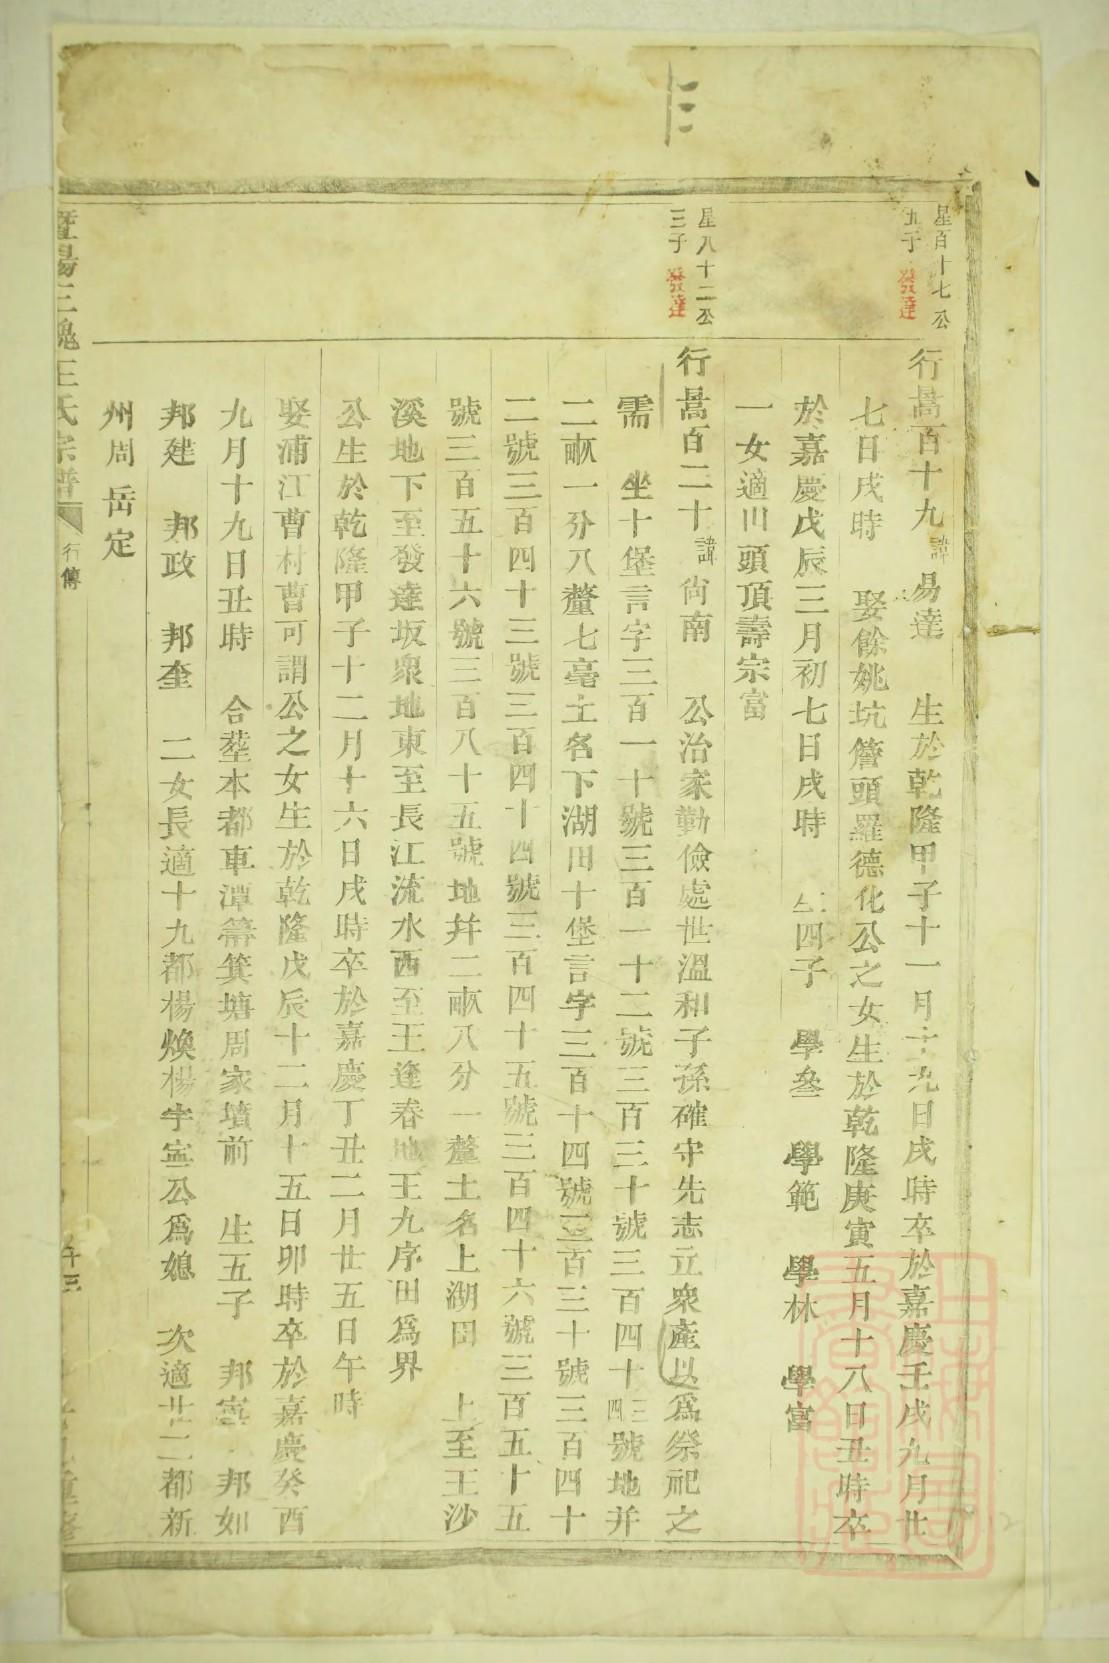 星百十七公
五子 發達
行暠百十九諱易達 生於乾隆甲子十一月 九日戌時卒於嘉慶壬戌九月廿
七日戌時 娶餘姚坑簷頭羅德化公之女生於乾隆庚寅五月十八日丑時卒
於嘉慶戊辰三月初七日戌時 生四子 學叄 學範 學林 學富
一女適川頭頂壽宗富
星八十二公
三子 發達
行暠百二十諱尙南 公治家勤儉處世溫和子孫確守先志立衆產以爲祭祀之
需 坐十堡言字三百一十號三百一十二號三百三十號三百四十三四號地并
二畝一分八釐七毫土名下湖田十堡言字三百十四號三百三十號三百四十
二號三百四十三號三百四十四號三百四十五號三百四十六號三百五十五
號三百五十六號三百八十五號地幷二畝八分一釐土名上湖田 上至王沙
溪地下至發達坂衆地東至長江流水西至王逢春地王九序田爲界
公生於乾隆甲子十二月十六日戌時卒於嘉慶丁丑二月廿五日午時
娶浦江曹村曹可謂公之女生於乾隆戊辰十二月十五日卯時卒於嘉慶癸酉
九月十九日丑時 合塟本都車潭箒箕塘周家墳前 生五子 邦寅 邦如
邦建 邦政 邦奎 二女長適十九都楊煥楊宇寍公爲媳 次適廿二都新
州周岳定
暨陽三槐王氏宗譜 行傳 重修